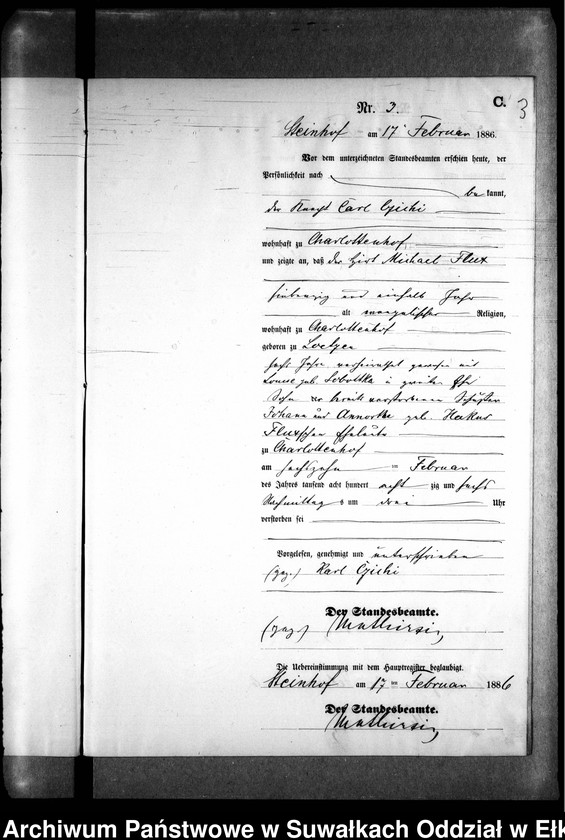 C.
3
Nr. 3.
Steinhof am 17 Februar 1886.
Vor dem unterzeichneten Standesbeamten erschien heute, der
Persönlichkeit nach
be kannt,
der Knecht Carl Czichi
wohnhaft zu Charlottenhof
und zeigte an, daß der Hirt Michael Flux
siebenzig und einhalb Jahr
alt evangelischer Religion,
wohnhaft zu Charlottenhof
geboren zu Loetzen
sechs Jahre verheirathet gewesen mit
Louise geb. Sobottka in zweiter Ehe
Sohn der bereits verstorbenen
Johann und Annorthe geb.
Fluxschen Eheleute
zu Charlottenhof
am sechszehn ten Februar
des Jahres tausend acht hundert acht zig und sechs
Nachmittags um drei Uhr
verstorben sei
Vorgelesen, genehmigt und unterschrieben
(gez.) Karl Czichi
Der Standesbeamte.
(gez)
Die Uebereinstimmung mit dem Hauptregister beglaubigt.
Steinhof am 17 ten Februar 1886
Der Standesbeamte.
Archiwum Państwowe w Suwałkach Oddział w Ełk